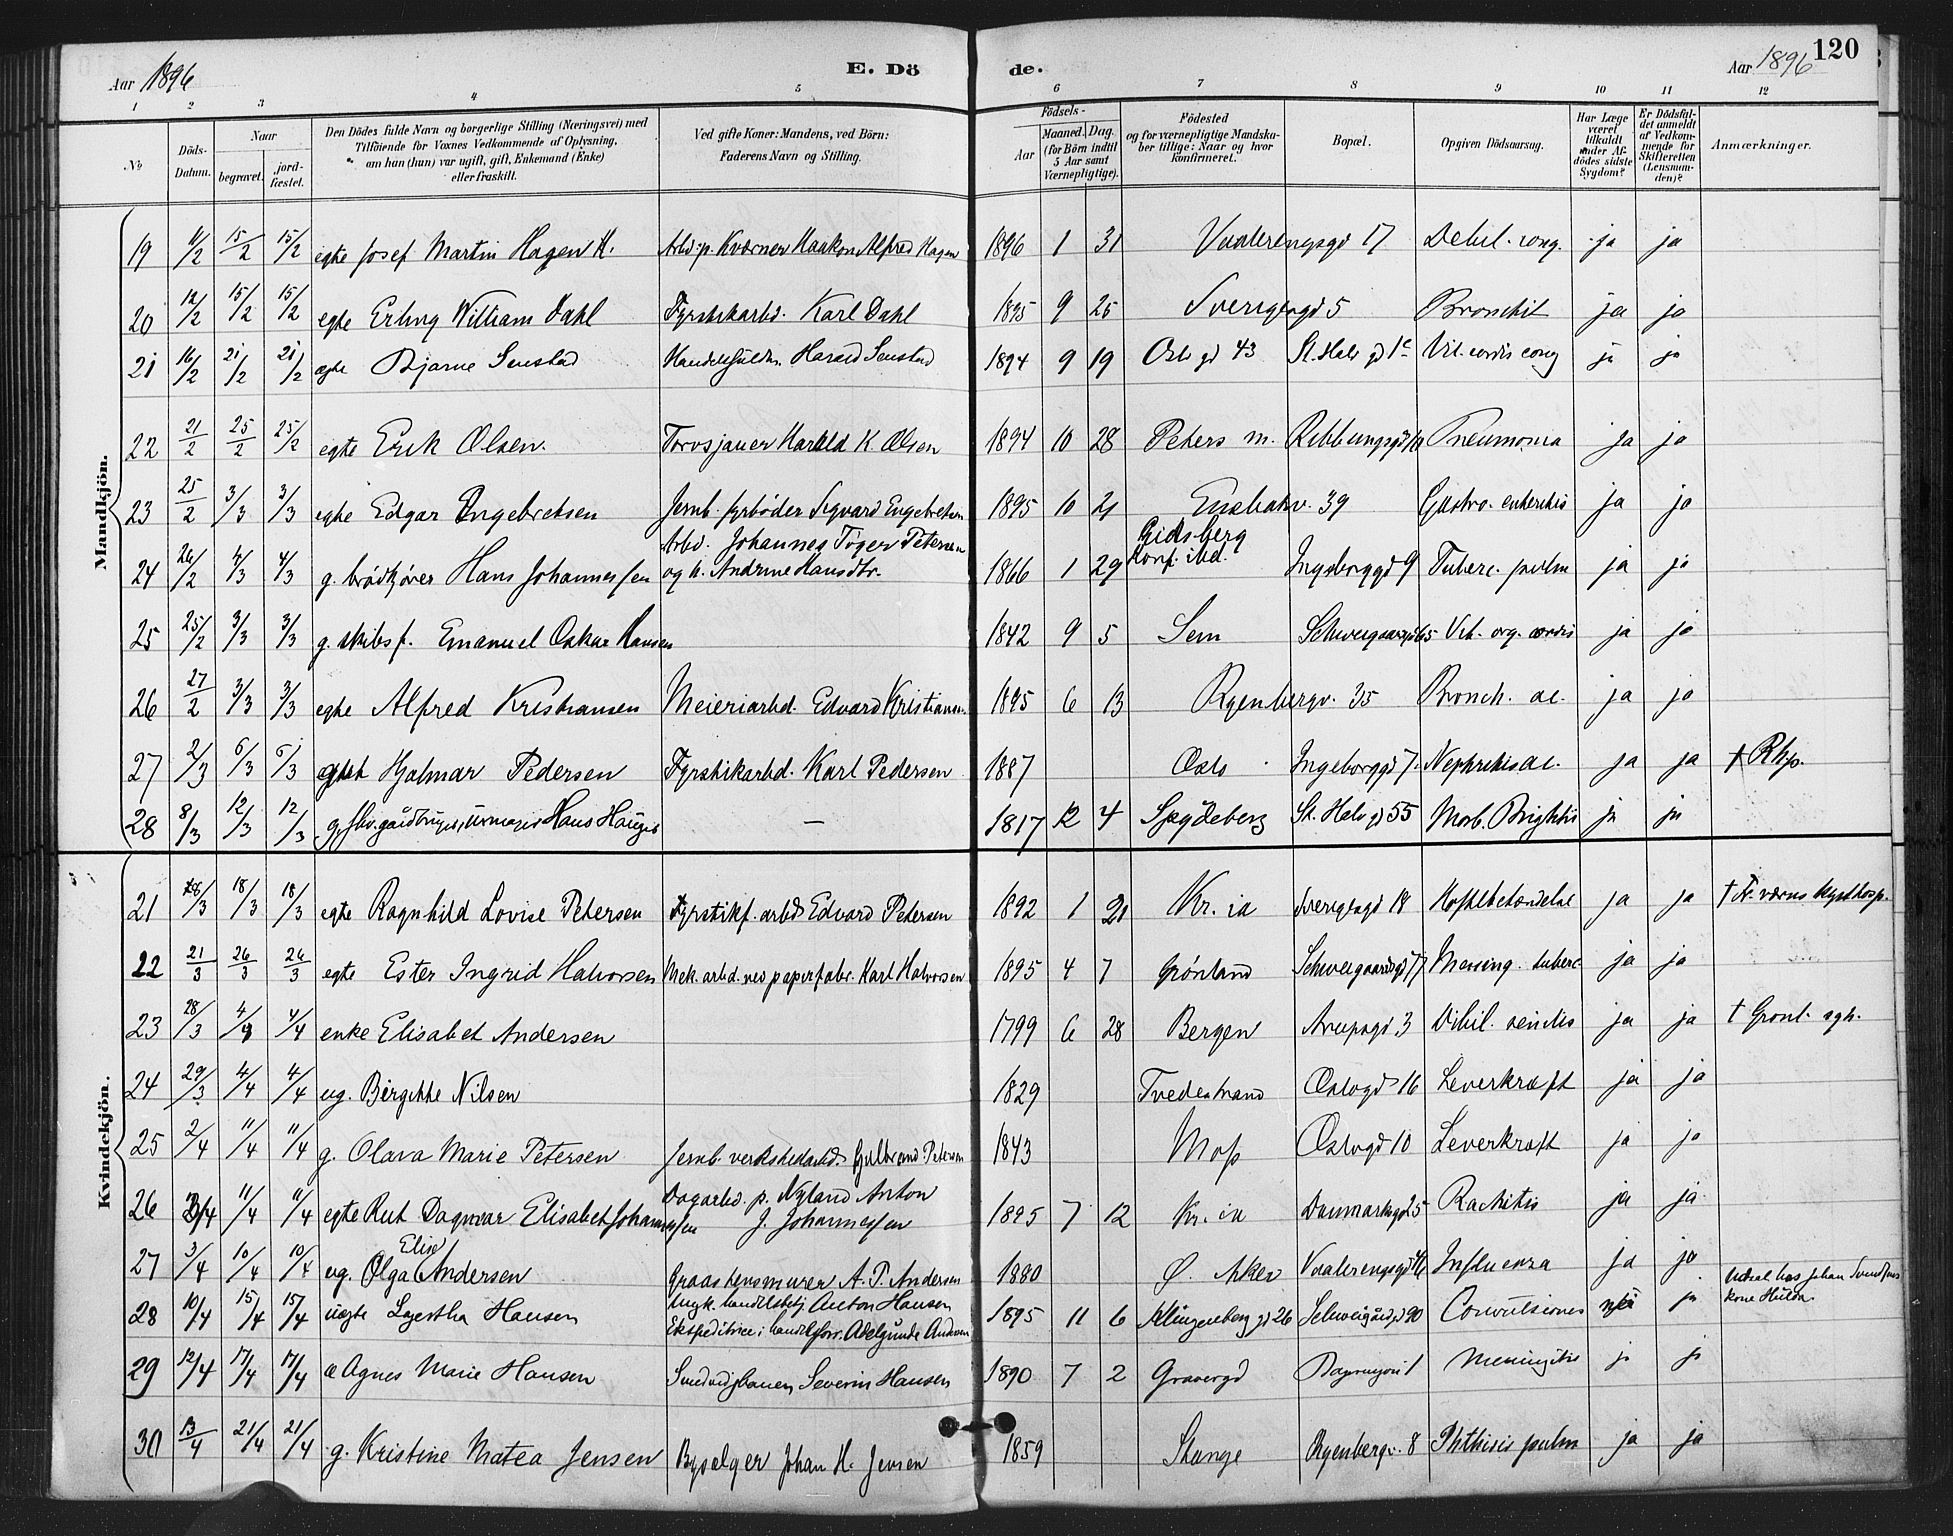 Aar 1896
E. Dö
de.
Aar 1896
120
1 2 3 4 5 6 7 8 9 10 11 12
№
Döds-Datum.
Naar
begravet.
jord-fæstet.
Den Dödes fulde Navn og borgerlige Stilling (Næringsvei) med Tilföiende for Voxnes Vedkommende af Oplysning, om han (hun) var ugift, gift, Enkemand (Enke) eller fraskilt.
Ved gifte Koner: Mandens, ved Börn: Faderens Navn og Stilling.
Födsels-
Aar
Maaned. Dag.
(for Börn indtil 5 Aar samt Værnepligtige).
Födested og for værnepligtige Mandskaber tillige: Naar og hvor konfirmeret.
Bopæl.
Opgiven Dödsaarsag.
Har Læge været tilkaldt under Afdödes sidste Sygdom?
Er Dödsfaldet anmeldt af Vedkommende for Skifteretten (Lensmanden)?
Anmærkninger.
Mandkjön.
19 11/2 15/2 15/2 egte Josef Martin Hagen H. Arbd. p. Kværner Haakon Alfred Hagen 1896 1 31 Vaalerengsgd 17 Debil. cong. ja ja
20 12/2 15/2 15/2 egte Erling William Dahl Fyrstikarbd. Karl Dahl 1895 9 25 Sverigesgd 5 Bronchit ja ja
21 16/2 21/2 21/2 egte Bjarne Senstad Handelsfuldm. Harald Senstad 1894 9 19 Oslo gd 43 St. Halv gd 1c Vit. cordis cong ja ja
22 21/2 25/2 25/2 egte Erik Olsen. Torvsjauer Harald K. Olsen 1894 10 28 Peters m. Pneumonia ja ja
23 25/2 3/3 3/3 egte Edgar Engebretsen Jernb. fyrböder Sigvard Engebretsen 1895 10 21 39 Gastro-enteritis ja ja
24 26/2 4/3 4/3 g. brödkjörer Hans Johannessen Arbd. Johannes Töger Petersen
og h. Andrine Hansdtr. 1866 1 29 Gidsberg
Konf. ibd. Ingeborggd 9 Tuberc. pulm ja ja
25 25/2 3/3 3/3 g. skibsf. Emanuel Oskar Hansen 1842 9 5 Sem Schweigaardsgd 65 Vit. org. cordis ja ja
26 27/2 3/3 3/3 egte Alfred Kristiansen Meieriarbd. Edvard Kristiansen 1895 6 13 Ryenbergv. 35 Bronch. ac. ja ja
27 2/3 6/3 6/3 Hjalmar Pedersen Fyrstikarbd. Karl Pedersen 1887 Oslo Ingeborggd 7. Nephritis ac. ja ja † Rhp.
28 8/3 12/3 12/3 g. gaardbruger, urmager Hans Hauger — 1817 12 4 Spydeberg St. Halv gd 55 Morb. Brightii ja ja
Kvindekjön.
21 18/3 18/3 egte Ragnhild Lovise Petersen Fyrstikf. arbd Edvard Petersen 1892 1 21 Kr.ia Sverigesgd 18 Hoftebetændelse ja ja † Fr.værns kysthosp.
22 21/3 26/3 26/3 egte Ester Ingrid Halvorsen Mek. arbd. ved papirfabr. Karl Halvorsen 1895 4 7 Grönland Schweigaardsgd 77 Mening. tuberc ja ja
23 28/3 4/4 4/4 enke Elisabet Andersen 1799 6 28 Bergen Arupsgd 3 Debil. senilis ja ja † Grönl. sgh.
24 29/3 4/4 4/4 ug. Birgitte Nilsen 1829 Tvedestrand Oslogd 16 Leverkræft ja ja
25 2/4 11/4 11/4 g. Olava Marie Petersen Jernb. verkstedarbd. Gulbrand Petersen 1843 Moss Oslogd 10 Leverkræft ja ja
26 11/4 11/4 egte Rut Dagmar Elisabet Johannessen Dagarbd. p. Nyland Anton
J. Johannessen 1895 7 12 Kr.ia Danmarksgd 25 Rachitis ja ja
27 3/4 10/4 10/4 ug. Olga Elise Andersen Graastensmurer A. P. Andersen 1880 Ø. Aker Vaalerengsgd Influenza ja ja
28 10/4 15/4 15/4 uegte Lagertha Hansen handelsbetj Anton Hansen
Ekspeditrice i handelsforr. Adelgunde Andersen 1895 11 6 Klingenberg gd 26 Schweigaardsgd 90 Convulsiones ja Udsat hos Johan
kone Hulda.
29 12/4 17/4 17/4 æ Agnes Marie Hansen Severin Hansen 1890 7 2 Gravergd Meningitis ja ja
30 13/4 21/4 21/4 g. Kristine Matea Jensen Bysælger Johan H. Jensen 1859 Stange Ryenbergv. 8 Phthisis pulm ja ja